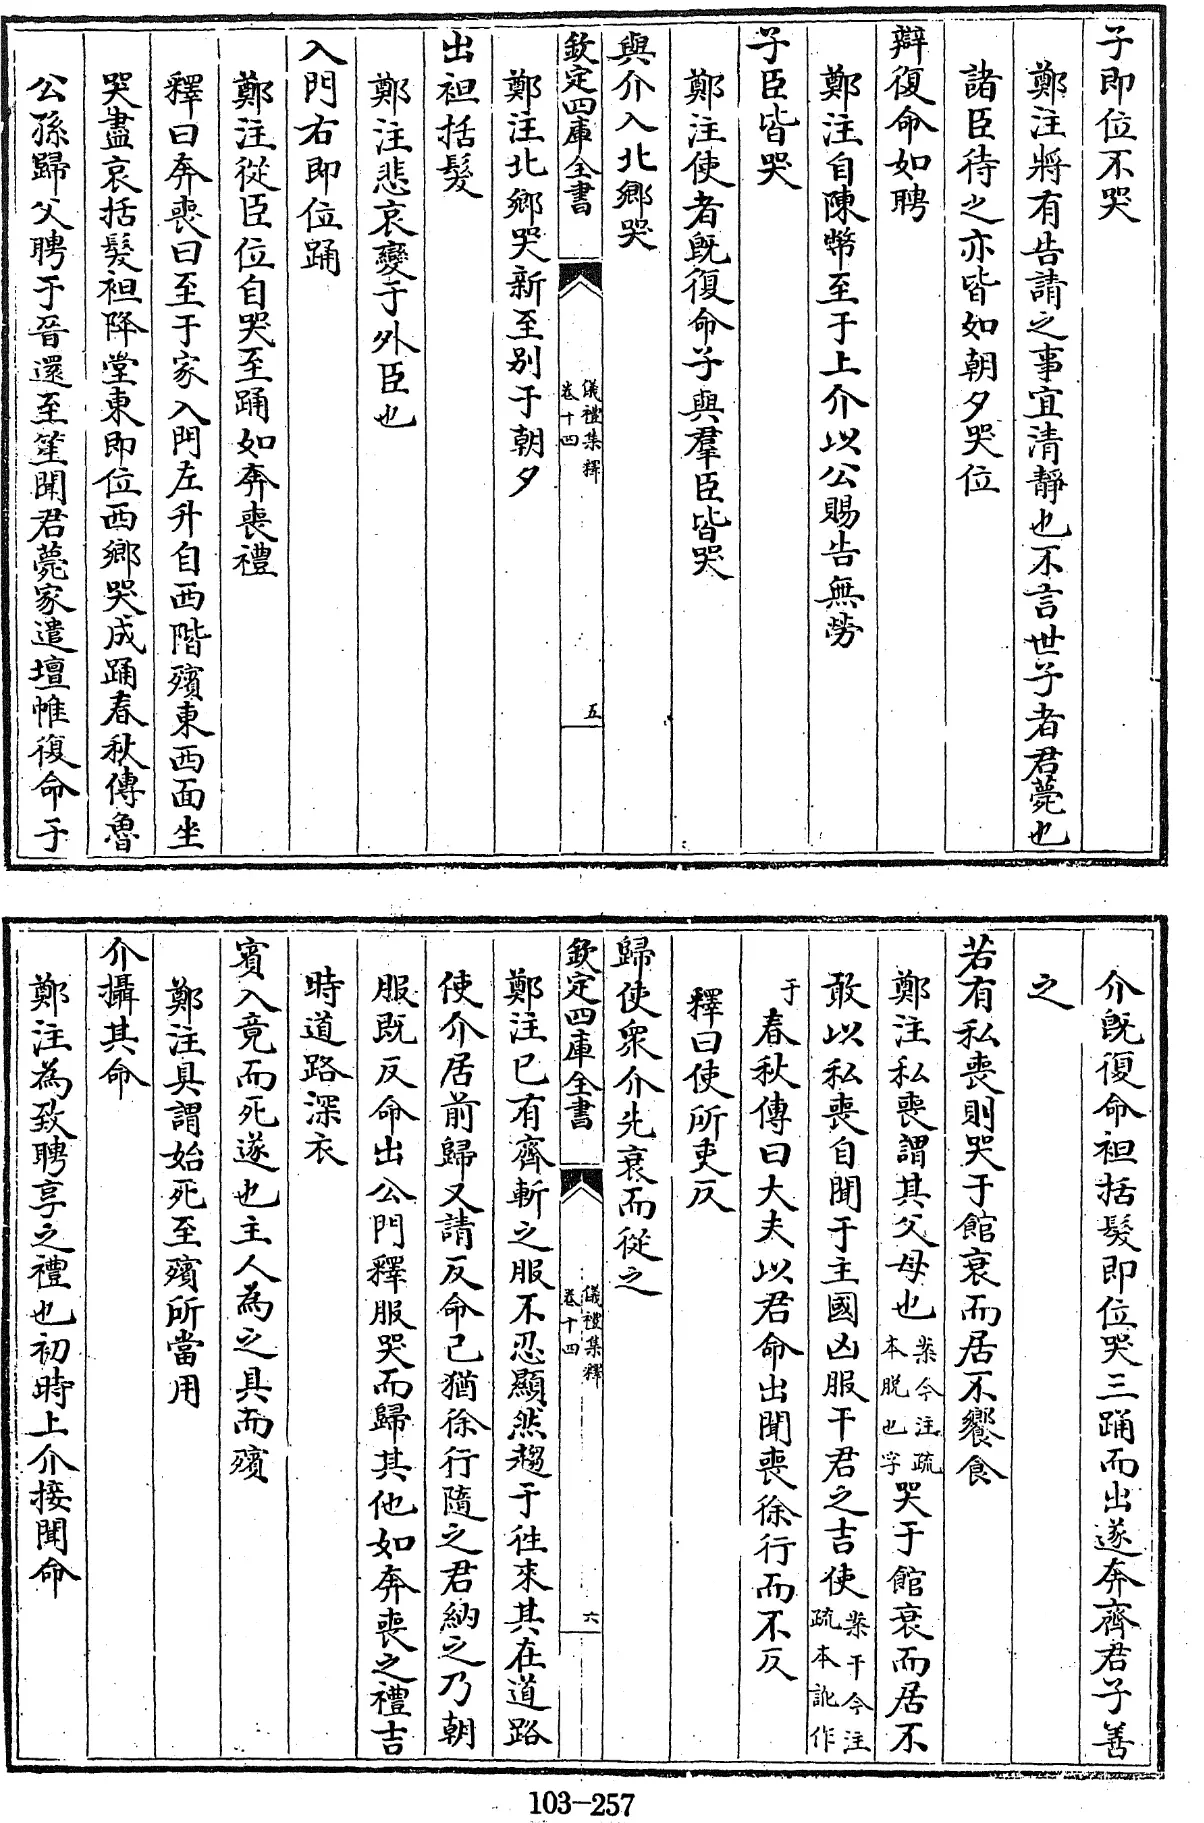 子即位不哭
鄭注將有告請之事宜清靜也不言世子者君薨也
諸臣待之亦皆如朝夕哭位
辯復命如聘
鄭注自陳幣至于上介以公賜告無勞
子臣皆哭
鄭注使者既復命子與羣臣皆哭
與介入北鄉哭
欽定四庫全書
儀禮集釋
卷十四
五
鄭注北鄉哭新至别于朝夕
出袒括髮
鄭注悲哀變于外臣也
入門右即位踊
鄭注從臣位自哭至踊如奔喪禮
釋曰奔喪曰至于家入門左升自西階殯東西面坐
哭盡哀括髮袒降堂東即位西鄉哭成踊春秋傳魯
公孫歸父聘于晉還至笙聞君薨家遣壇帷復命于
介既復命袒括髮即位哭三踊而出遂奔齊君子善
之
若有私喪則哭于館衰而居不饗食
鄭注私喪謂其父母也案今注疏本脱也字哭于館衰而居不
敢以私喪自聞于主國凶服干君之吉使案干今注疏本訛作
于春秋傳曰大夫以君命出聞喪徐行而不反
釋曰使所吏反
歸使衆介先衰而從之
欽定四庫全書
儀禮集釋
卷十四
六
鄭注已有齊斬之服不忍顯然趨于往來其在道路
使介居前歸又請反命己猶徐行隨之君納之乃朝
服既反命出公門釋服哭而歸其他如奔喪之禮吉
時道路深衣
賓入竟而死遂也主人為之具而殯
鄭注具謂始死至殯所當用
介攝其命
鄭注為致聘享之禮也初時上介接聞命
103-257